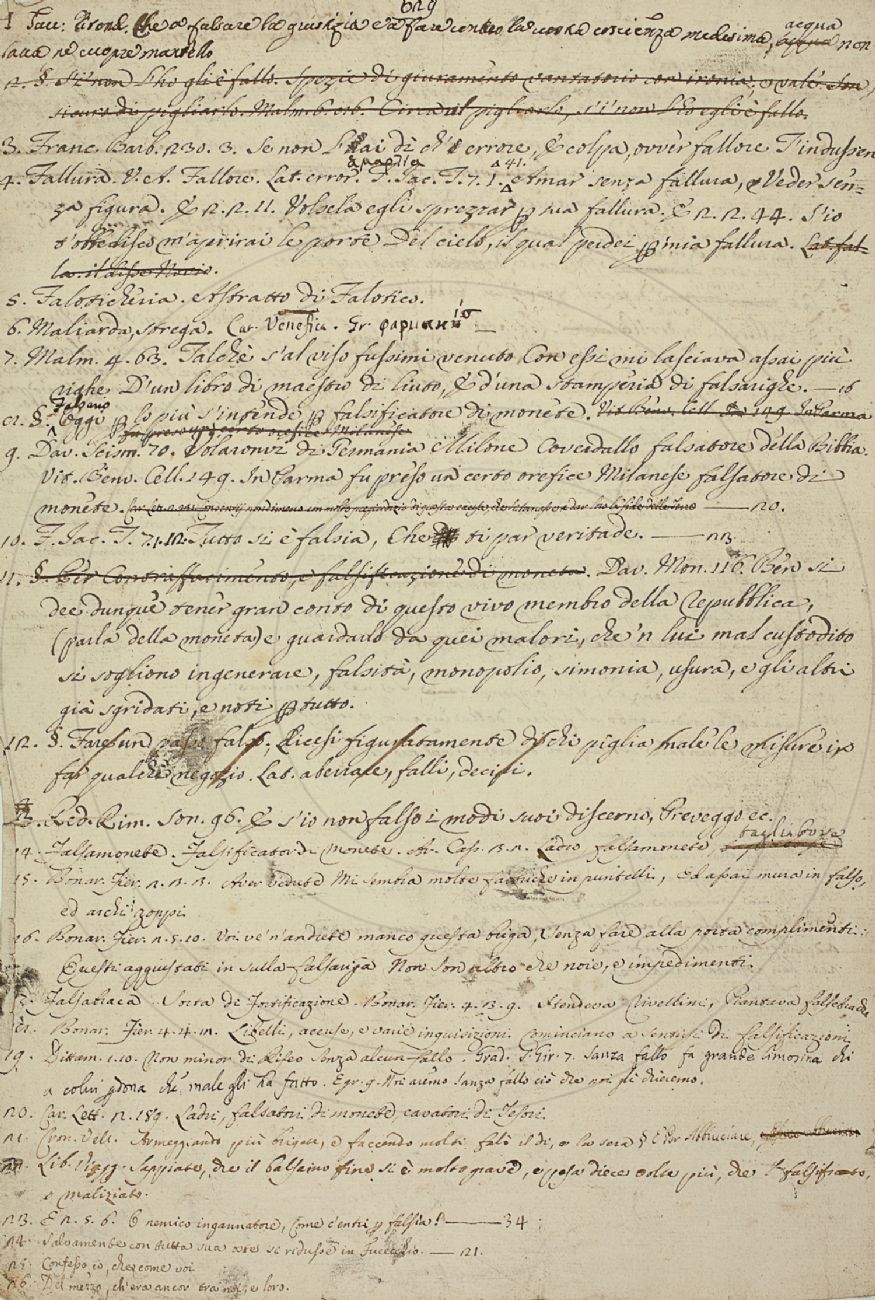 629
1 Tac: Che a falsare la giustizia e a fare contro la coscienza medesima, acqua non
lava nè cuopre mantello
2. §. Se non l'ho gli è fallo. Spezie di giuramento con ironia, e vale Son
sicuro di pigliarlo. Malm. 6. Circa il pigliarlo, s'i' non l'ho egli è fallo.
3. Franc. Barb. 230. 3. Se non l'hai di ch'è errore, E colpa, ovver fallore T'indussen
4. Fallura. V. A. Fallore. Lat. error. F. Jac. T. 7. 1. 41. Amar senza fallura, Veder sen-
za figura. E 2. 2. 11. Volsela egli sprezzar ꝑ sua fallura. E 2. 2. 44. S'io
t'obbedisco m'aprirai le porte Del cielo, il qual perdei ꝑ mia fallura.
5. Faloticheria. Astratto di Falotico.
6. Maliarda, strega. Lat. Venefica. Gr. φαρμακίς
7. Malm. 4. 63. Talchè s'al viso fussimi venuto Con essi mi lasciava assai più
righe D'un libro di maestro di liuto, E d'una stamperia di falsarighe. — 16
8. §. Falsario Oggi ꝑ lo più s'intende ꝑ falsificatore di monete. Vit. Benv. Cell. 149. In Parma
fu preso un certo orefice Milanese
9. Dav. Scism. 70. Volaronvi di Germania Milone Coverdallo falsatore della Bibbia.
Vit. Benv. Cell. 149. In Parma fu preso un certo orefice Milanese falsatore di
monete. — 20.
10. F. Jac. T. 7. Tutto si è falsia, Che ti par veritade. — 23
11. §. Per Contraffacimento, e falsificazione di moneta. Dav. Mon. 116. Ben si
dee dunque tener gran conto di questo vivo membro della Repubblica,
(parla della moneta) e guardarlo da quei malori, che 'n lui mal custodito
si sogliono ingenerare, falsità, monopolio, simonia, usura, e gli altri
già sgridati, e noti ꝑ tutto.
12. §. Fare un passo falso, Dicesi figuratamente di chi piglia male le misure in
far qualche negozio. Lat. aberrare, falli, decipi.
Red. Rim. Son. 96. E s'io non falso i modi suoi discerno, Preveggo ec.
14. Falsamonete. Falsificator di monete. Ar. Cass. Ladro falsamonete, tagliaborse
15. Bonar. Fier. 2. 3. 3. Aver vedute Mi sembra molte fabbriche in puntelli, Ed assai mura in falso,
ed archi zoppi.
16. Bonar. Fier. 2. 5. 10. Voi ve n'andiate manco questa briga, Senza fare alla porta complimenti:
Questi aggiustati in sulla falsariga Non son altro che noie, e impedimenti.
17. Falsabraca. Sorta di Fortificazione. Bonar. Fier. 4. 3. 9. Stendeva Rivellini, Piantava falsebrache
18. Bonar. Fier. 4. 4. 2. Libelli, accuse, e varie inquisizioni Cominciano a sentirsi di falsificazioni
19. Dittam. 1. 10. Non minor di Riseo Senza alcun fallo. Grad. S. Gir. 7. Sanza fallo fa grande limosina chi
a colui ꝑdona che male gli ha fatto. E gr. 9. Noi avemo sanza fallo ciò che noi gli chiedemo.
20. Car. Lett. 2. 189. Ladri, falsatori di monete cavatori di Tesori.
21. Cron. Vell. Armeggiando più brigate, e faccendo molti falò il dì, e la sera § E Per Abbruciare,
22. Lib. Viagg. Sappiate, che il balsamo fine si è molto grave, e pesa diece volte più, che 'l falsificato,
e maliziato.
23. E 2. 5. 6. O nemico ingannatore, Come c'entri ꝑ falsia! — 34
24. Salvamente con tutta sua oste si ridusse in Fucecchio. — 21.
25. Confesso io, che, come voi
26. Del mezzo, ch'era ancor tra noi, e loro.